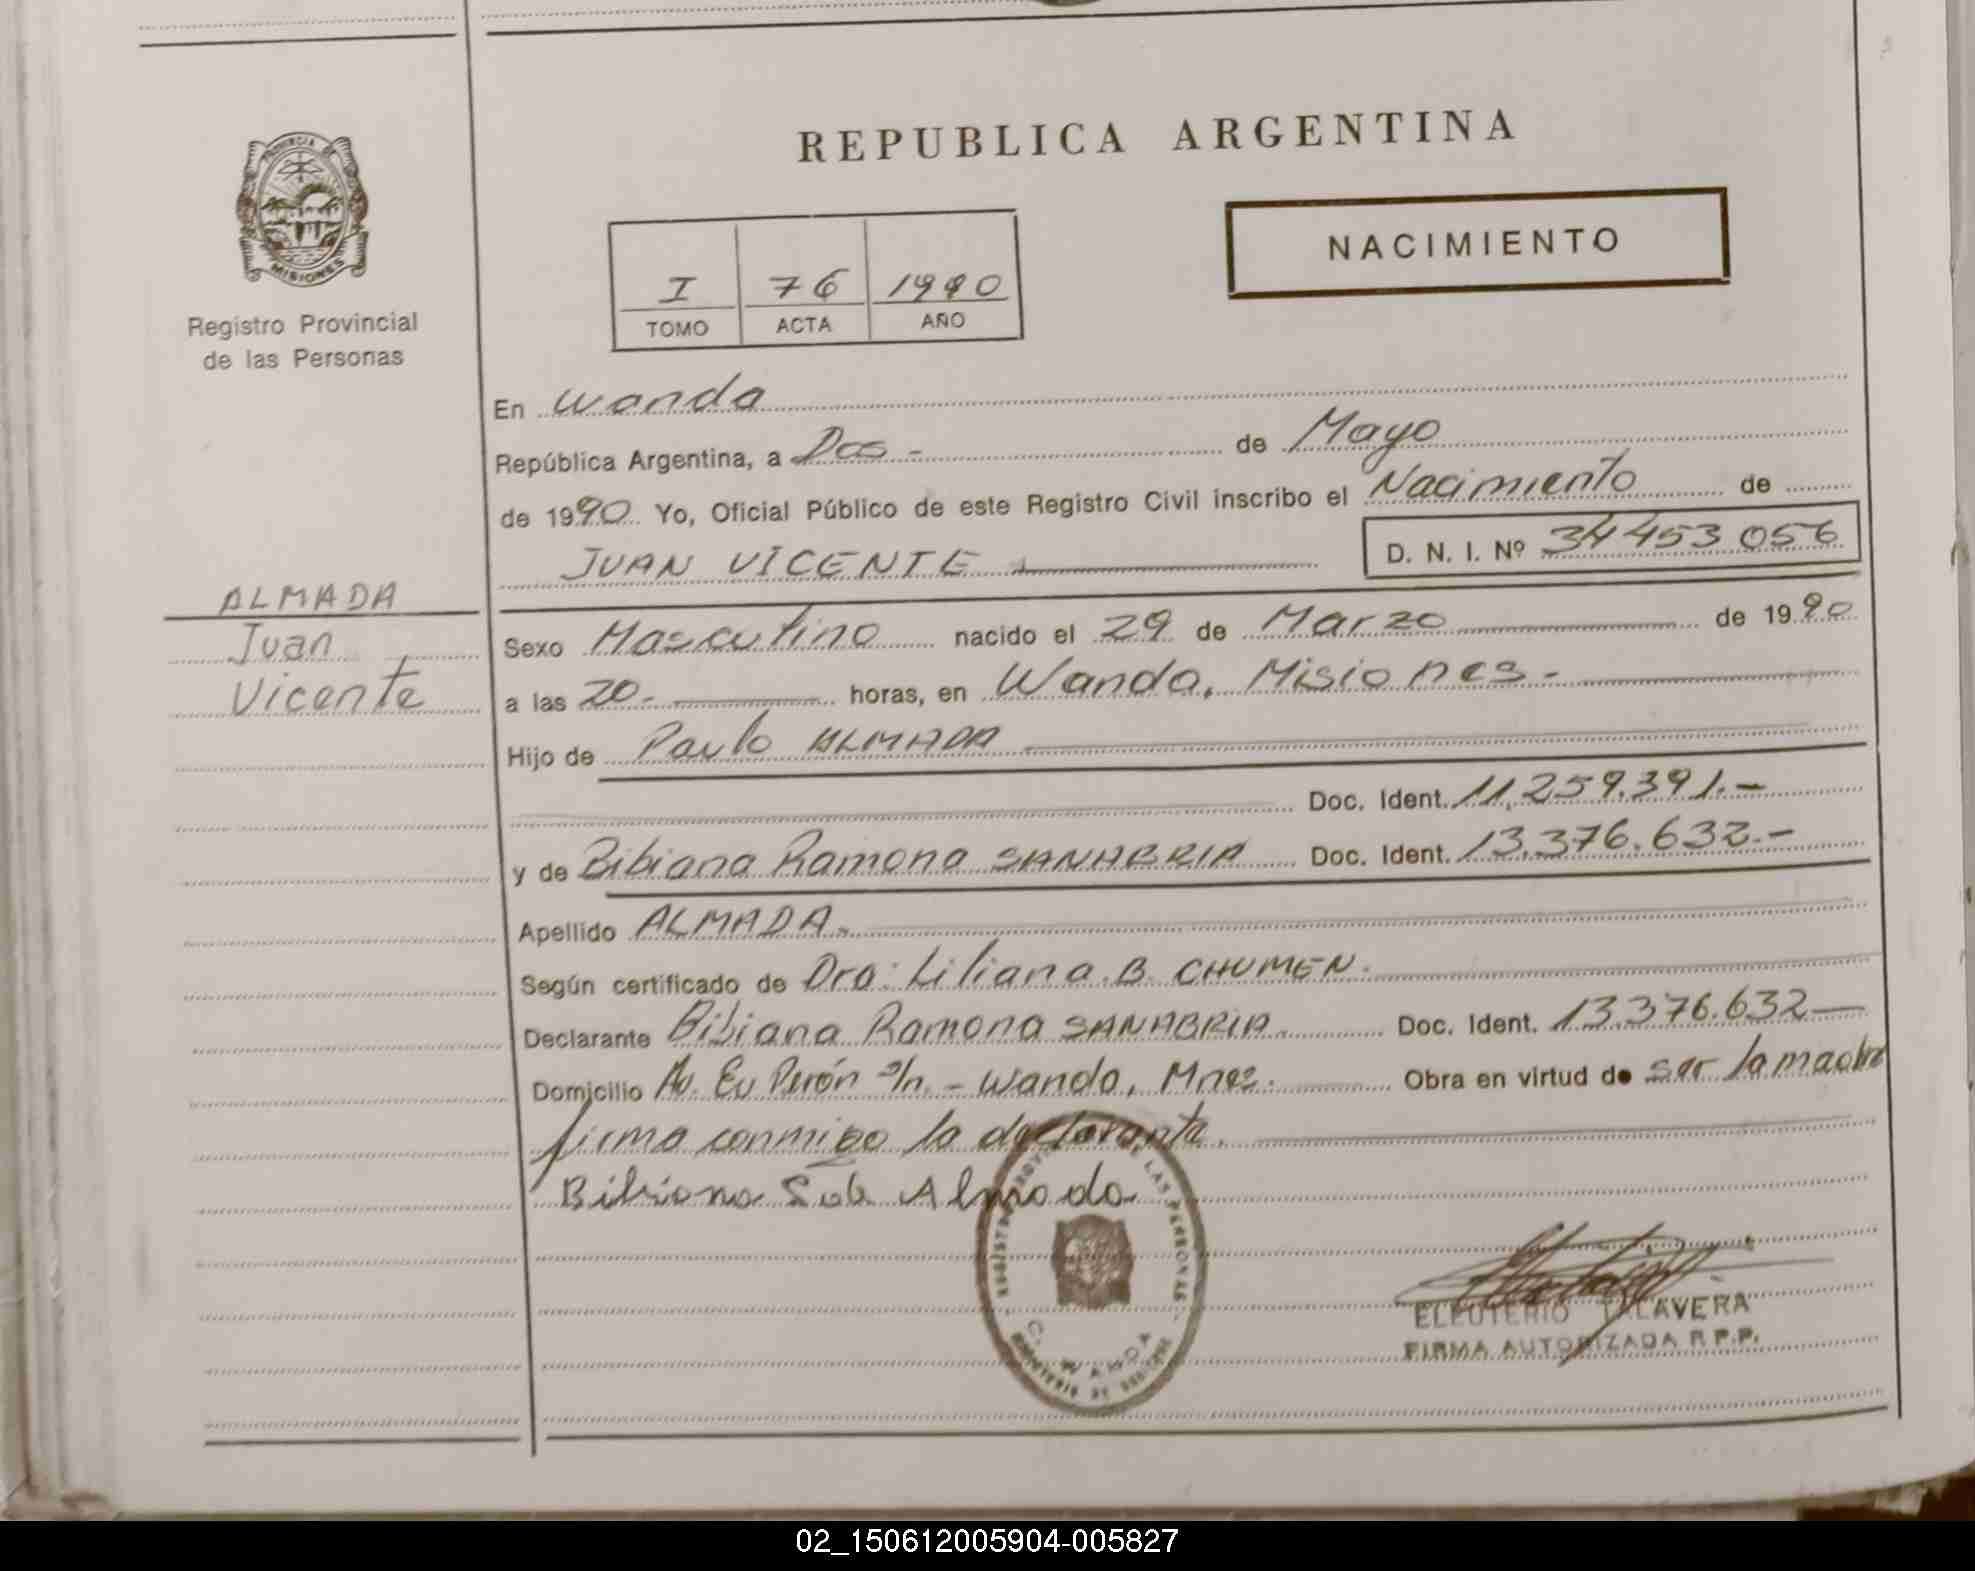 PROVINCIA DE
MISIONES
Registro Provincial
de las Personas
REPUBLICA ARGENTINA
NACIMIENTO
I 76 1990
TOMO ACTA AÑO
En Wanda
República Argentina, a Dos - de Mayo
de 1990 Yo, Oficial Público de este Registro Civil inscribo el Nacimiento de
JUAN VICENTE D. N. I. Nº 34453056
ALMADA
Juan
Vicente
Sexo Masculino nacido el 29 de Marzo de 1990
a las 20.- horas, en Wanda, Misiones.-
Hijo de Paulo ALMADA
Doc. Ident. 11.259.391.-
y de Bibiana Ramona SANABRIA Doc. Ident. 13.376.632.-
Apellido ALMADA.
Según certificado de Dra: Liliana B. CHUMEN.
Declarante Bibiana Ramona SANABRIA. Doc. Ident. 13.376.632
Domicilio Av. Ev Perón s/n. - Wanda, Mnes. Obra en virtud de ser la madre
firma conmigo la declarante.
Bibiana Almada
DE LAS PERSONAS
WANDA
ELEUTERIO TALAVERA
FIRMA AUTORIZADA R.P.P.
02_150612005904-005827